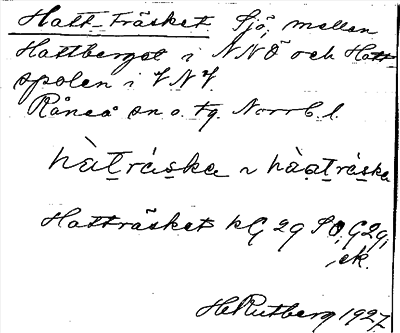 Hatt-Träsket Sjö, mellan
Hattberget i NNÖ och Hatt-
spolen i VNV.
Råneå sn o. tg. Norrb. l.
hàt̲rás̲ka ~ hàat̲rás̲ka
Hatträsket kG 29 SO, G29,
ek.
H Rutberg 1927.